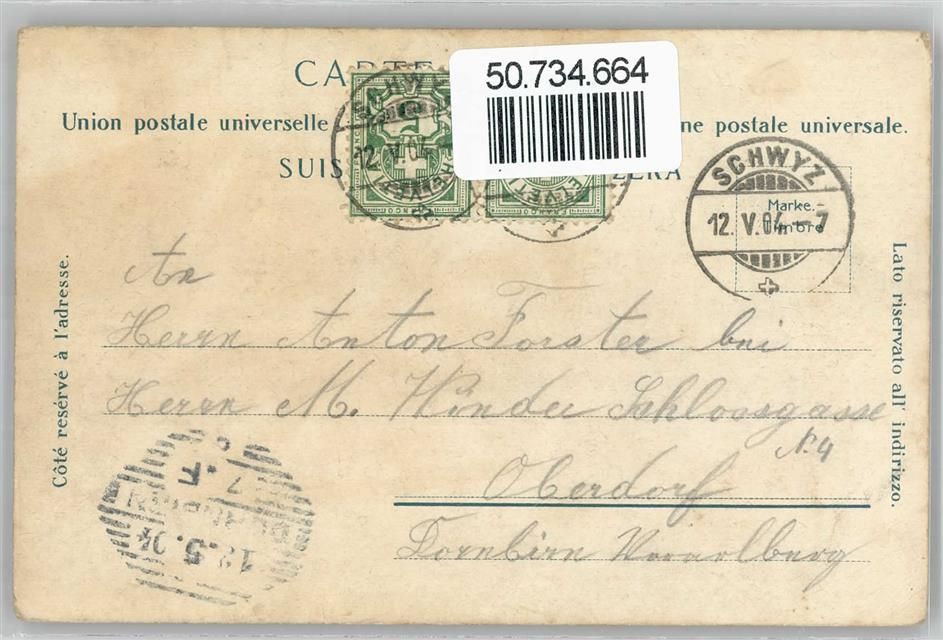 CARTE
50.734.664
Union postale universelle
ne postale universale.
SUIS
ZERA
SCHWYZ
12. V. 04 – 7
Marke. –
Timbre
12. V. 04
FRANCO
FRANCO
Côté resérvé à l'adresse.
Lato riservato all' indirizzo.
An
Herrn Anton Forster bei
Herrn M. Winder Schlossgasse
N. 4
Oberdorf
Dornbirn Vorarlberg
12.5.04